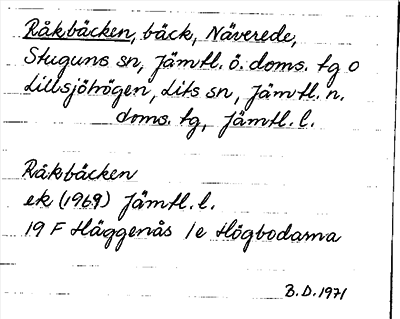 Råkbäcken, bäck, Näverede,
Stuguns sn, Jämtl. ö. doms. tg o
Lillsjöhögen, Lits sn, Jämtl. n.
doms. tg, Jämtl. l.
Råkbäcken
ek (1969) Jämtl. l.
19 F Häggenås 1e Högbodarna
B.D. 1971